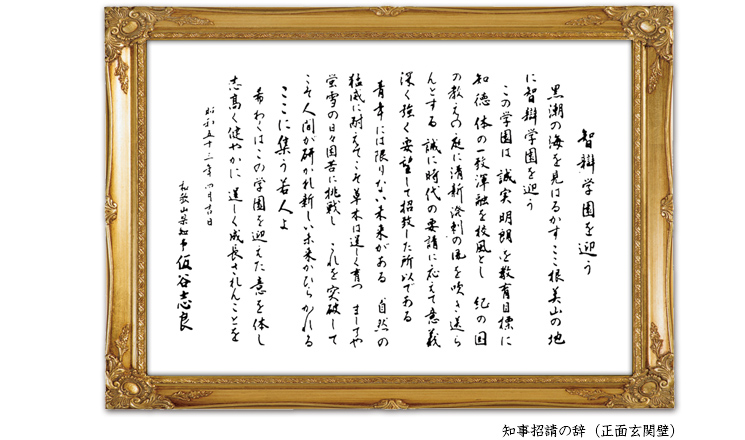 智辯学園を迎う
黒潮の海を見はるかすここ根美山の地
に智辯学園を迎う
この学園は誠実明朗を教育目標に
知徳体の一致渾融を校風とし 紀の国
の教えの庭に清新溌剌の風を吹き送ら
んとする 誠に時代の要請に応えて意義
深く強く要望して招致した所以である
青年には限りない未来がある 自然の
猛威に耐えてこそ草木は逞しく育つ ましてや
蛍雪の日々困苦に挑戦し これを突破して
こそ人間が研かれ新しい未来がひらかれる
ここに集う若人よ
希わくはこの学園を迎えた意を体し
志高く健やかに 逞しく成長されんことを
昭和五十三年四月 日
和歌山県知事 仮谷志良
知事招請の辞（正面玄関壁）